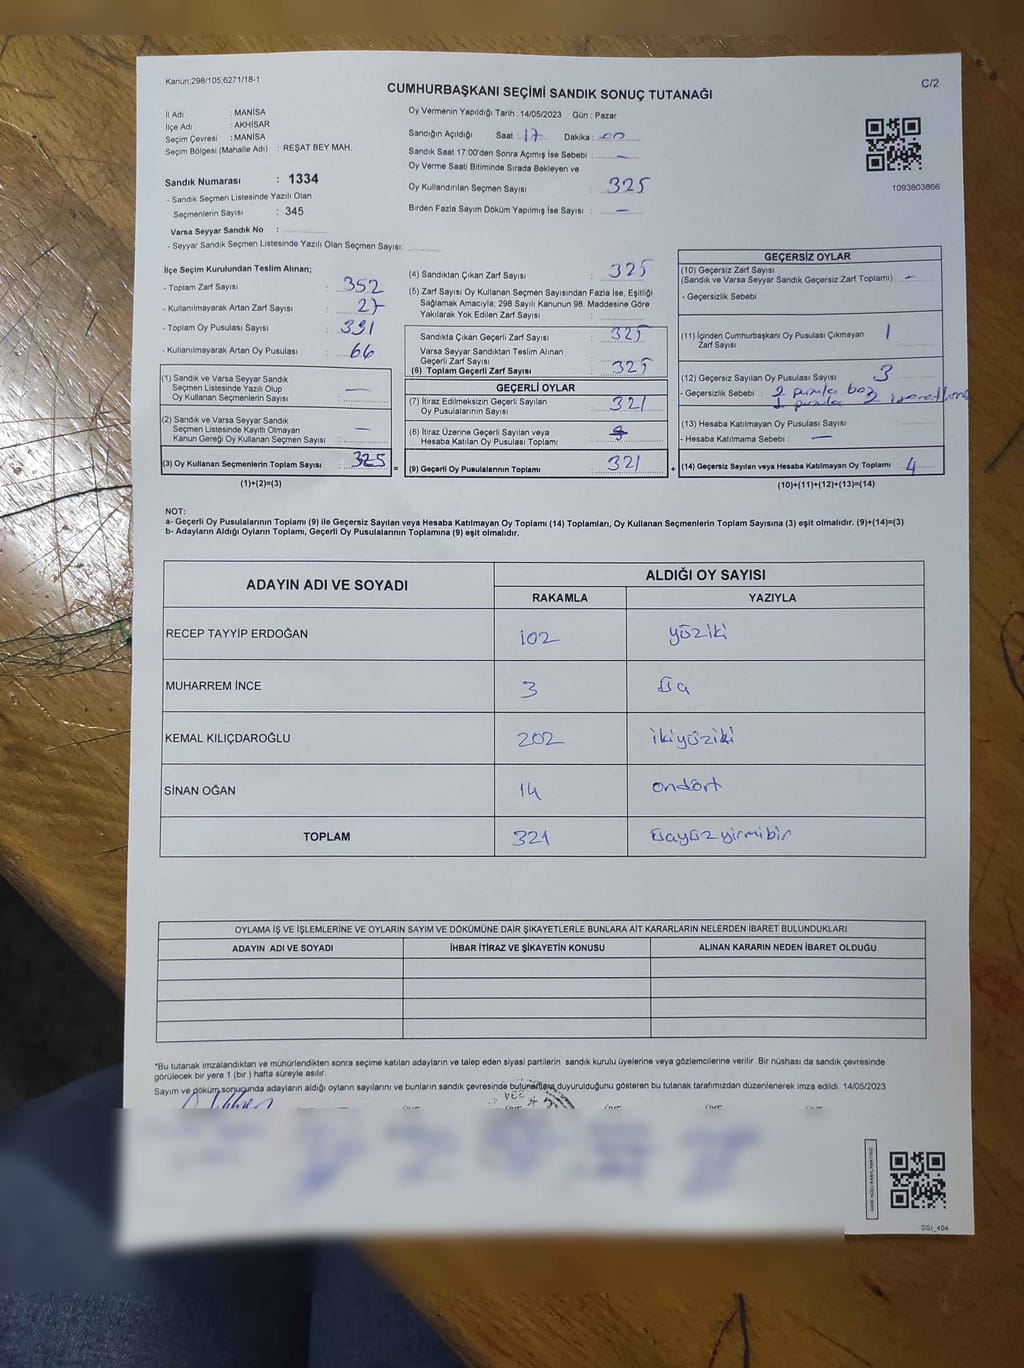 Kanun:298/105;6271/18-1
C/2
CUMHURBAŞKANI SEÇİMİ SANDIK SONUÇ TUTANAĞI
İl Adı : MANİSA
İlçe Adı : AKHİSAR
Seçim Çevresi : MANİSA
Seçim Bölgesi (Mahalle Adı) : REŞAT BEY MAH.
Sandık Numarası : 1334
- Sandık Seçmen Listesinde Yazılı Olan
Seçmenlerin Sayısı : 345
Varsa Seyyar Sandık No :
- Seyyar Sandık Seçmen Listesinde Yazılı Olan Seçmen Sayısı:
Oy Vermenin Yapıldığı Tarih :14/05/2023 Gün : Pazar
Sandığın Açıldığı Saat : 17 Dakika : 00
Sandık Saat 17:00'den Sonra Açımış İse Sebebi : —
Oy Verme Saati Bitiminde Sırada Bekleyen ve
Oy Kullandırılan Seçmen Sayısı : 325
Birden Fazla Sayım Döküm Yapılmış İse Sayısı : —
1093803866
İlçe Seçim Kurulundan Teslim Alınan;
- Toplam Zarf Sayısı : 352
- Kullanılmayarak Artan Zarf Sayısı : 27
- Toplam Oy Pusulası Sayısı : 391
- Kullanılmayarak Artan Oy Pusulası : 66
(1) Sandık ve Varsa Seyyar Sandık
Seçmen Listesinde Yazılı Olup
Oy Kullanan Seçmenlerin Sayısı : —
(2) Sandık ve Varsa Seyyar Sandık
Seçmen Listesinde Kayıtlı Olmayan
Kanun Gereği Oy Kullanan Seçmen Sayısı : —
(3) Oy Kullanan Seçmenlerin Toplam Sayısı : 325 =
(1)+(2)=(3)
(4) Sandıktan Çıkan Zarf Sayısı : 325
(5) Zarf Sayısı Oy Kullanan Seçmen Sayısından Fazla İse, Eşitliği
Sağlamak Amacıyla; 298 Sayılı Kanunun 98. Maddesine Göre
Yakılarak Yok Edilen Zarf Sayısı :
Sandıkta Çıkan Geçerli Zarf Sayısı : 325
Varsa Seyyar Sandıktan Teslim Alınan
Geçerli Zarf Sayısı :
(6) Toplam Geçerli Zarf Sayısı : 325
GEÇERLİ OYLAR
(7) İtiraz Edilmeksizin Geçerli Sayılan
Oy Pusulalarının Sayısı : 321
(8) İtiraz Üzerine Geçerli Sayılan veya
Hesaba Katılan Oy Pusulası Toplamı :
(9) Geçerli Oy Pusulalarının Toplamı : 321 +
GEÇERSİZ OYLAR
(10) Geçersiz Zarf Sayısı
(Sandık ve Varsa Seyyar Sandık Geçersiz Zarf Toplamı) : —
- Geçersizlik Sebebi :
(11) İçinden Cumhurbaşkanı Oy Pusulası Çıkmayan
Zarf Sayısı : 1
(12) Geçersiz Sayılan Oy Pusulası Sayısı : 3
- Geçersizlik Sebebi : 2 pusula boş
1 pusula 2
(13) Hesaba Katılmayan Oy Pusulası Sayısı :
- Hesaba Katılmama Sebebi : —
(14) Geçersiz Sayılan veya Hesaba Katılmayan Oy Toplamı : 4
(10)+(11)+(12)+(13)=(14)
NOT:
a- Geçerli Oy Pusulalarının Toplamı (9) ile Geçersiz Sayılan veya Hesaba Katılmayan Oy Toplamı (14) Toplamları, Oy Kullanan Seçmenlerin Toplam Sayısına (3) eşit olmalıdır. (9)+(14)=(3)
b- Adayların Aldığı Oyların Toplamı, Geçerli Oy Pusulalarının Toplamına (9) eşit olmalıdır.
ADAYIN ADI VE SOYADI ALDIĞI OY SAYISI
RAKAMLA YAZIYLA
RECEP TAYYİP ERDOĞAN 102 yüziki
MUHARREM İNCE 3 üç
KEMAL KILIÇDAROĞLU 202 ikiyüziki
SİNAN OĞAN 14 ondört
TOPLAM 321 üçyüzyirmibir
OYLAMA İŞ VE İŞLEMLERİNE VE OYLARIN SAYIM VE DÖKÜMÜNE DAİR ŞİKAYETLERLE BUNLARA AİT KARARLARIN NELERDEN İBARET BULUNDUKLARI
ADAYIN ADI VE SOYADI İHBAR İTİRAZ VE ŞİKAYETİN KONUSU ALINAN KARARIN NEDEN İBARET OLDUĞU
*Bu tutanak imzalandıktan ve mühürlendikten sonra seçime katılan adayların ve talep eden siyasi partilerin sandık kurulu üyelerine veya gözlemcilerine verilir. Bir nüshası da sandık çevresinde
görülecek bir yere 1 (bir ) hafta süreyle asılır.
Sayım ve döküm sonucunda adayların aldığı oyların sayılarını ve bunların sandık çevresinde bulunanlara duyurulduğunu gösteren bu tutanak tarafımızdan düzenlenerek imza edildi. 14/05/2023
SSI_404